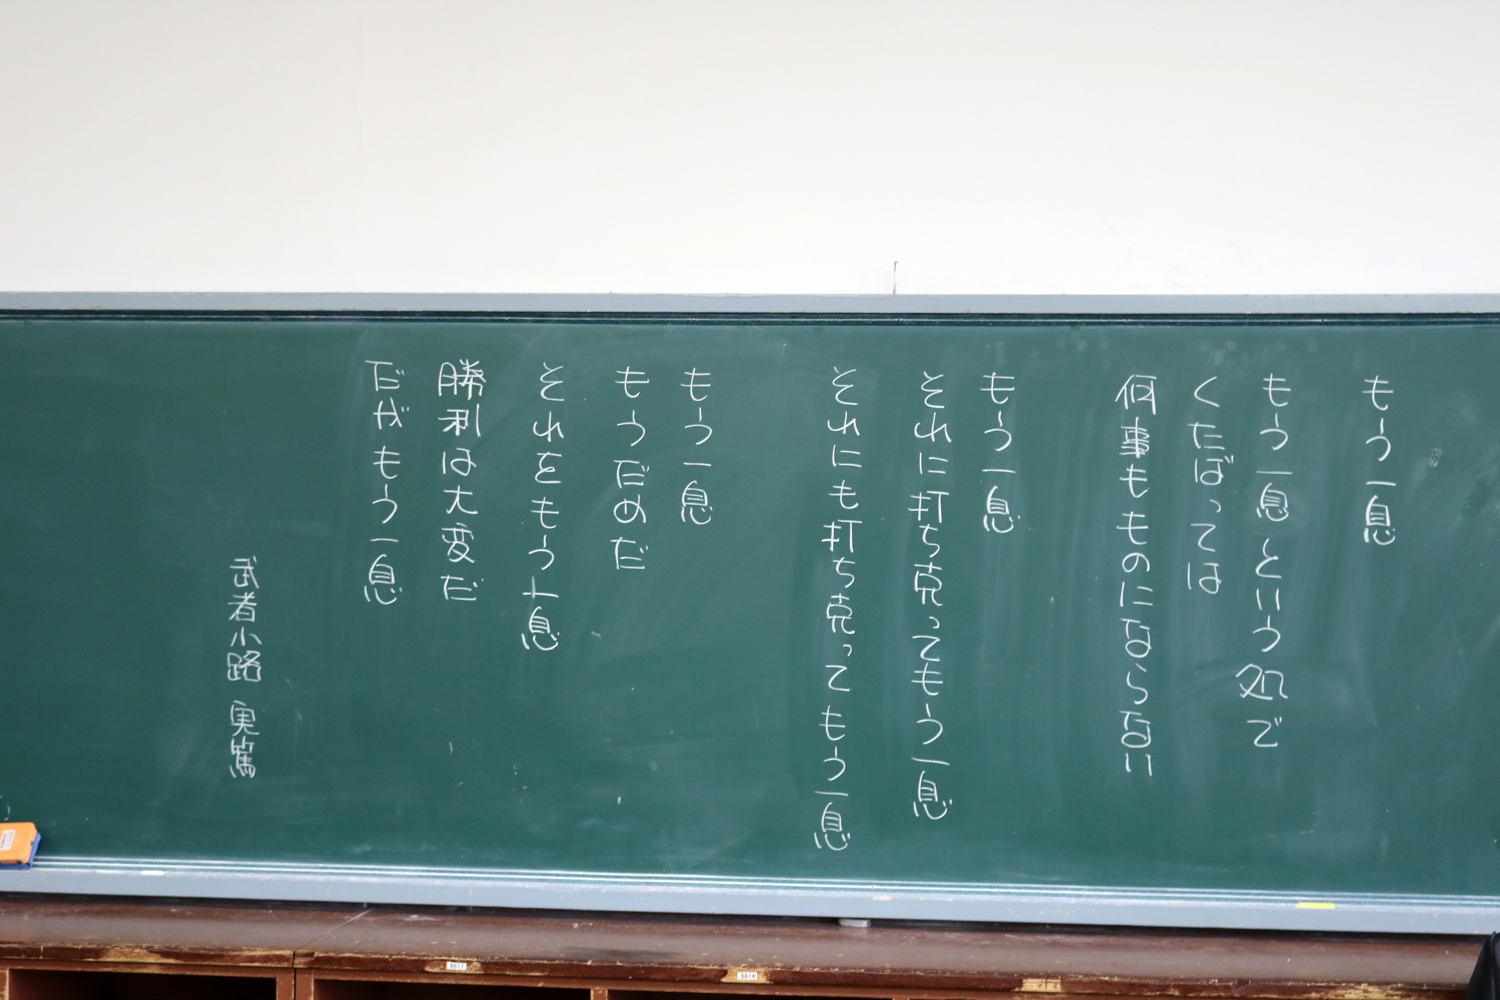 もう一息
もう一息という処で
くたばっては
何事もものにならない
もう一息
それに打ち克ってもう一息
それにも打ち克ってもう一息
もう一息
もうだめだ
それをもう一息
勝利は大変だ
だがもう一息
武者小路 実篤
6613
6614